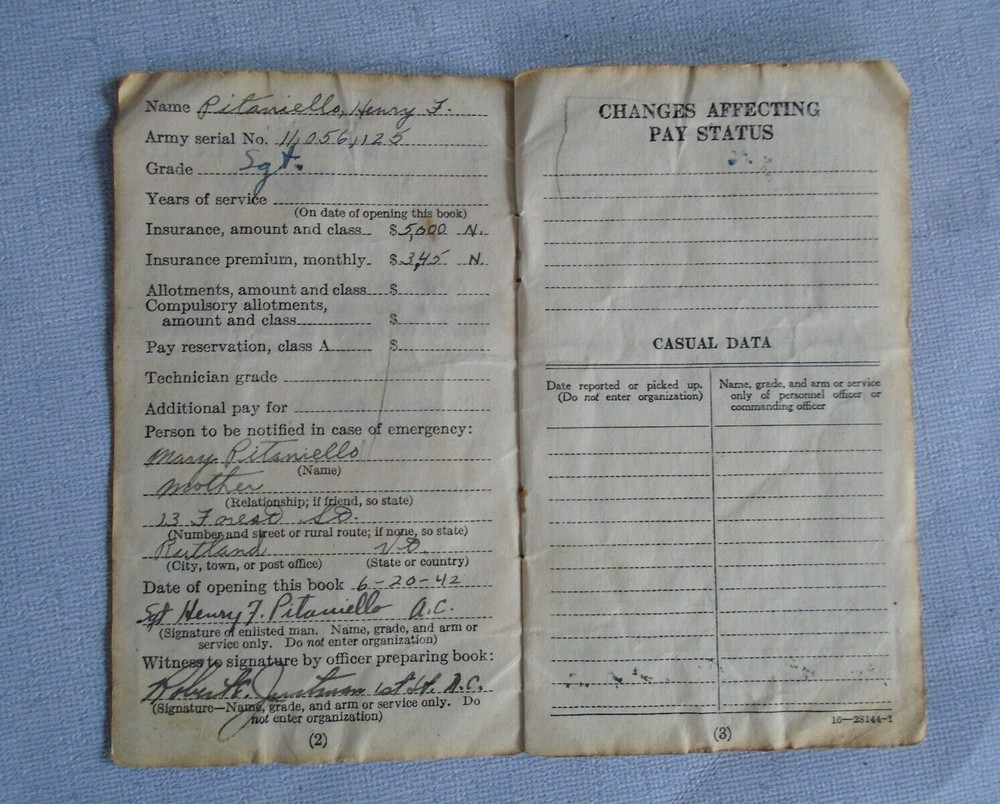 Name Pitaniello, Henry F.
Army serial No. 11,056,125
Grade Sgt.
Years of service
(On date of opening this book)
Insurance, amount and class $5,000 N.
Insurance premium, monthly $3,45 N.
Allotments, amount and class $
Compulsory allotments,
amount and class $
Pay reservation, class A $
Technician grade
Additional pay for
Person to be notified in case of emergency:
Mary Pitaniello
(Name)
Mother
(Relationship; if friend, so state)
13 Forest St.
(Number and street or rural route; if none, so state)
Rutland Vt.
(City, town, or post office) (State or country)
Date of opening this book 6-20-42
Sgt Henry F. Pitaniello A.C.
(Signature of enlisted man. Name, grade, and arm or
service only. Do not enter organization)
Witness to signature by officer preparing book:
1st Lt. A.C.
(Signature—Name, grade, and arm or service only. Do
not enter organization)
(2)
CHANGES AFFECTING
PAY STATUS
CASUAL DATA
Date reported or picked up.
(Do not enter organization)
Name, grade, and arm or service
only of personnel officer or
commanding officer
16—28144-1
(3)